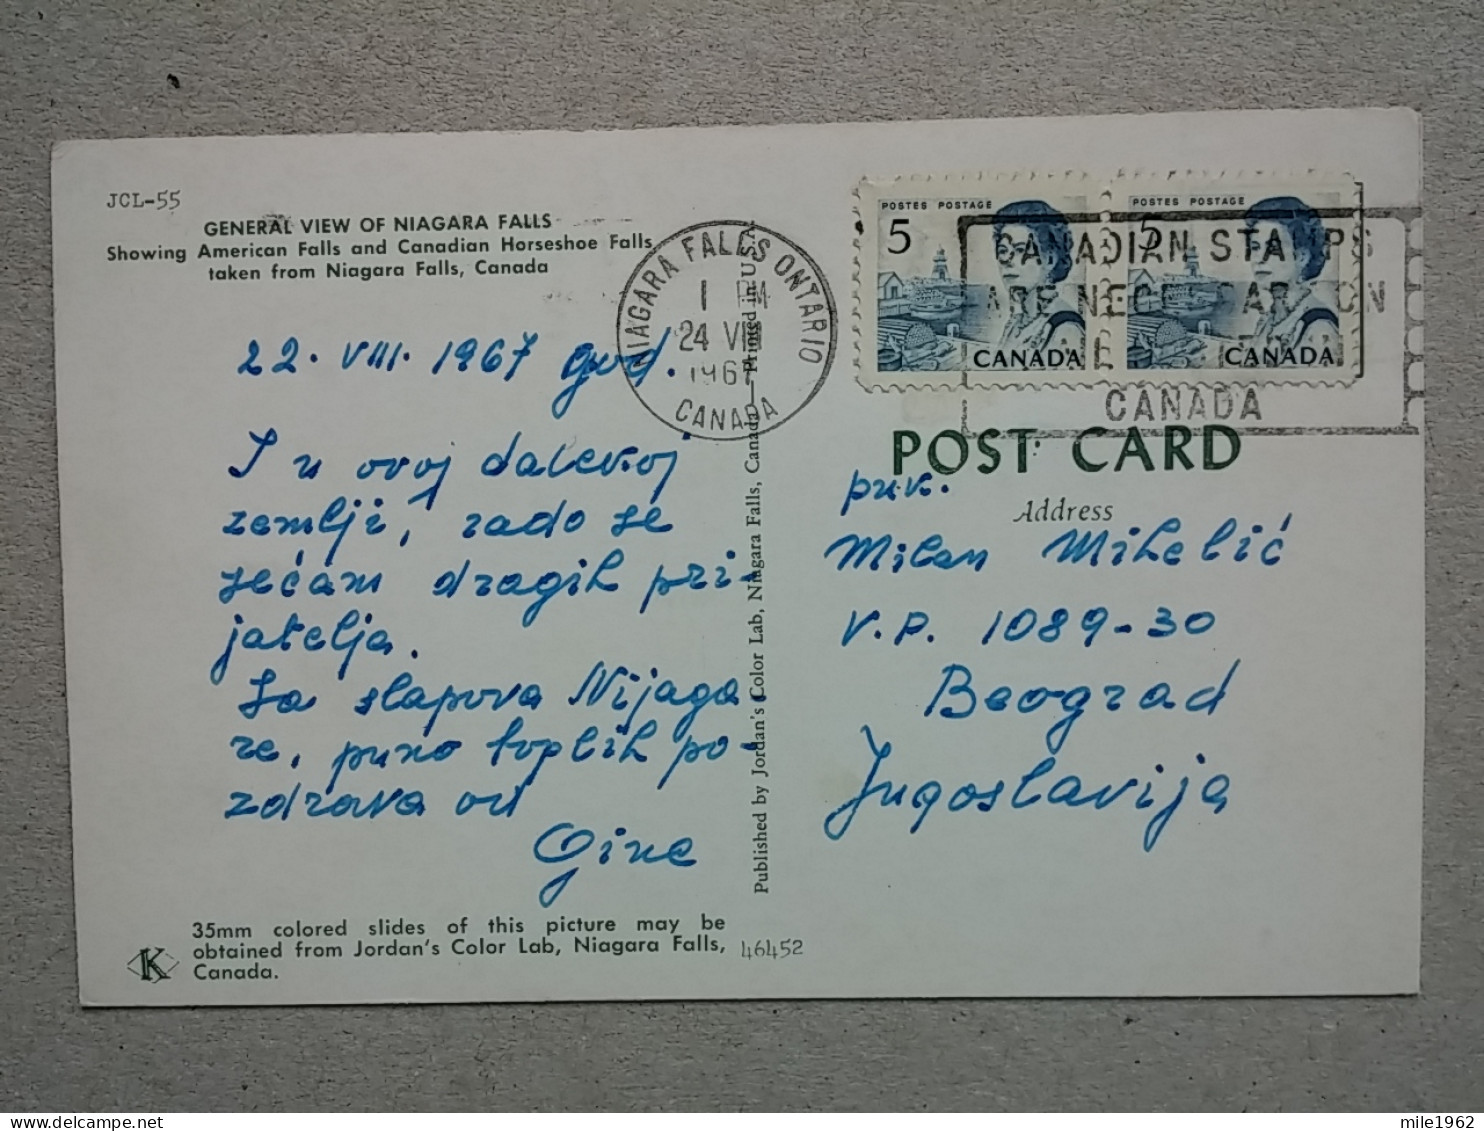 JCL-55
GENERAL VIEW OF NIAGARA FALLS
Showing American Falls and Canadian Horseshoe Falls
taken from Niagara Falls, Canada
22. VIII. 1967 god.
I u ovoj dalekoj
zemlji, rado se
sećam dragih pri-
jatelja.
Sa slapova Nijaga
re, puno toplih po-
zdrava od
Gine
35mm colored slides of this picture may be
obtained from Jordan's Color Lab, Niagara Falls,
Canada.
K
46452
Published by Jordan's Color Lab, Niagara Falls, Canada — Printed in U.S.A.
NIAGARA FALLS ONTARIO
1 PM
24 VIII
1967
CANADA
POSTES POSTAGE
5
CANADA
POSTES POSTAGE
5
CANADA
CANADIAN STAMPS
ARE NECESSARY ON
CANADA
POST CARD
Address
puk.
Milan Mihelić
V.P. 1089-30
Beograd
Jugoslavija
mile1962